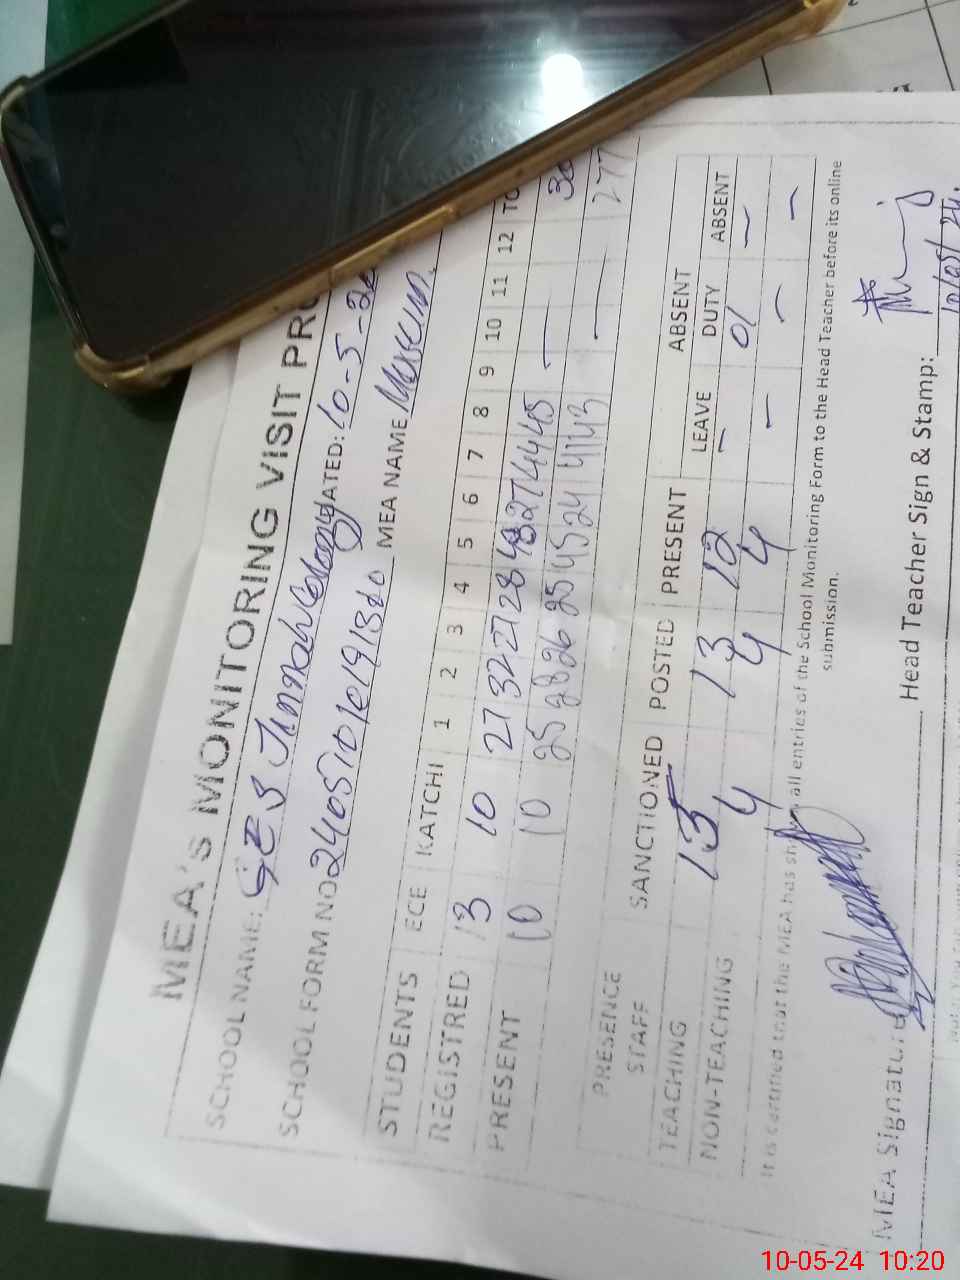 MEA's MONITORING VISIT PRO
SCHOOL NAME: GES Jinnah Colony DATED: 10-5-24
SCHOOL FORM NO MEA NAME
STUDENTS ECE KATCHI 1 2 3 4 5 6 7 8 9 10 11 12 TO
REGISTRED 13 10 27 32 27 28 48 27 44 45 — — 30
PRESENT 10 10 25 28 26 25 45 24 41 43 — — 277
PRESENCE SANCTIONED POSTED PRESENT ABSENT
STAFF LEAVE DUTY ABSENT
TEACHING 15 13 12 — 01 —
NON-TEACHING 4 4 4 — — —
It is certified that the MEA has shown all entries of the School Monitoring Form to the Head Teacher before its online
submission.
MEA Signature Head Teacher Sign & Stamp:
10/05/24.
10-05-24 10:20